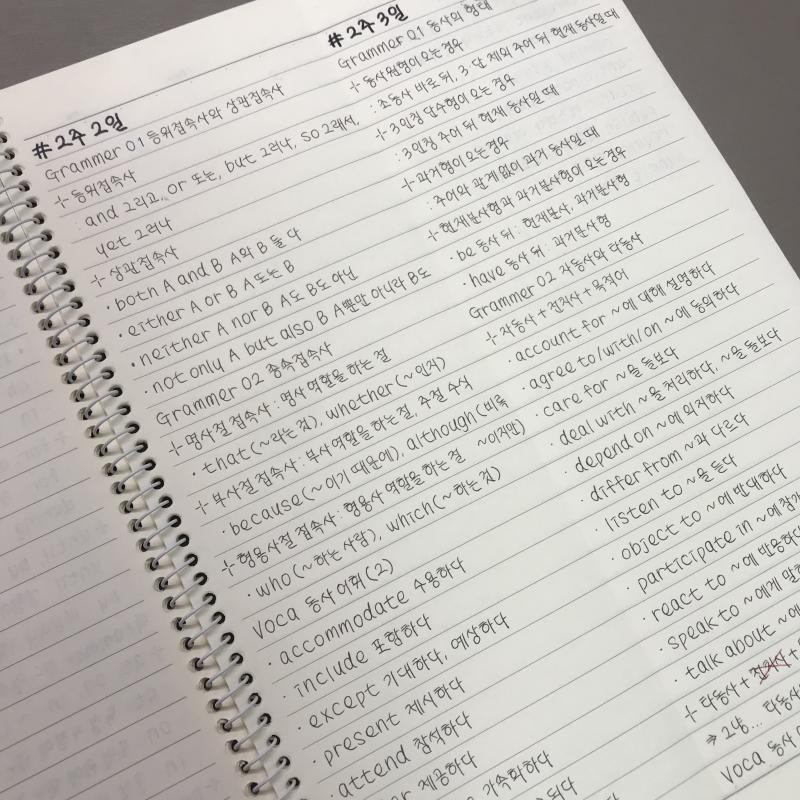 #2주 2일
Grammer 01 등위접속사와 상관접속사
+ 등위접속사
: and 그리고, or 또는, but 그러나, so 그래서,
yet 그러나
+ 상관접속사
· both A and B A와 B 둘 다
· either A or B A 또는 B
· neither A nor B A도 B도 아닌
· not only A but also B A뿐만 아니라 B도
Grammer 02 종속접속사
+ 명사절 접속사 : 명사 역할을 하는 절
· that (~라는 것), whether (~인지)
+ 부사절 접속사 : 부사역할을 하는 절, 주절 수식
· because (~이기 때문에), although (비록
~이지만)
+ 형용사절 접속사 : 형용사 역할을 하는 절
· who (~하는 사람), which (~하는 것)
Voca 동사 어휘 (2)
· accommodate 수용하다
· include 포함하다
· except 기대하다, 예상하다
· present 제시하다
· attend 참석하다
제공하다
가속화하다
#2주 3일
Grammer 01 동사의 형태
+ 동사원형이 오는 경우
: 조동사 바로 뒤, 3·단 제외 주어 뒤 현재 동사일 때
+ 3인칭 단수형이 오는 경우
: 3인칭 주어 뒤 현재 동사일 때
+ 과거형이 오는 경우
: 주어와 관계 없이 과거 동사일 때
+ 현재분사형과 과거분사형이 오는 경우
· be 동사 뒤 : 현재분사, 과거분사형
· have 동사 뒤 : 과거분사형
Grammer 02 자동사와 타동사
+ 자동사 + 전치사 + 목적어
· account for ~에 대해 설명하다
· agree to/with/on ~에 동의하다
· care for ~을 돌보다
· deal with ~을 처리하다, ~을 돌보다
· depend on ~에 의지하다
· differ from ~과 다르다
· listen to ~을 듣다
· object to ~에 반대하다
· participate in ~에 참가
· react to ~에 반응하
· speak to ~에게 말
· talk about ~에
+ 타동사 +
⇒ 그냥... 타동사
Voca 동사